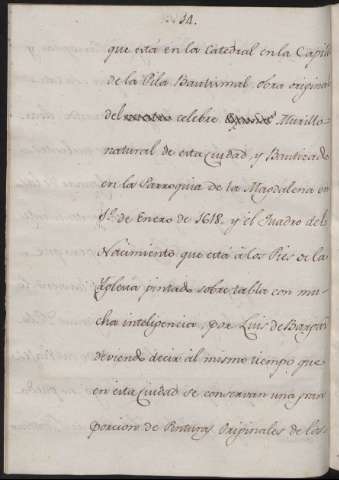 14.
que está en la Catedral en la Capill
de la Pila Bautismal obra origina
del celebre Murillo
natural de esta Ciudad y Bautizado
en la Parroquia de la Magdalena en
1º. de Enero de 1618. y el Quadro del
Nacimiento que está á los Pies de la
Yglesia pintado sobre tabla con mu-
cha inteligencia, por Luis de Bargas
deviendo decir al mismo tiempo que
en esta Ciudad se conservan una gran
porcion de Pinturas Originales de los